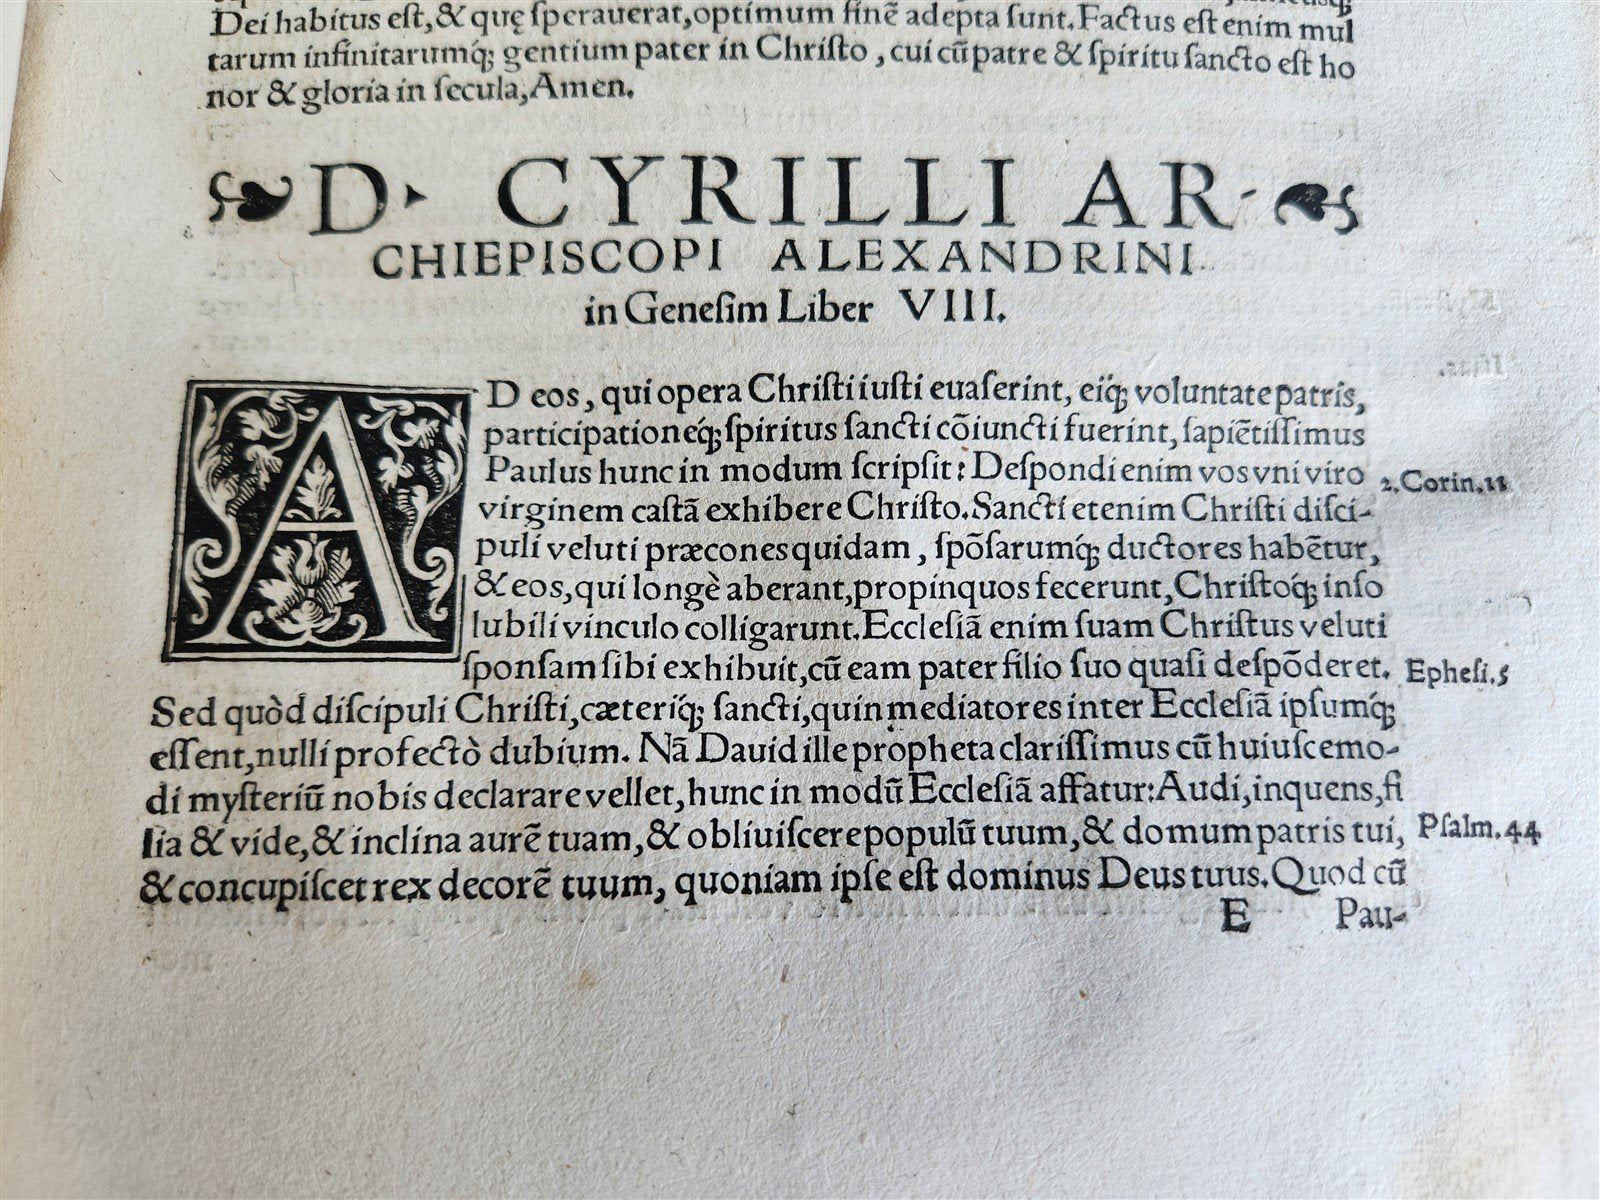 Dei habitus est, & quę sperauerat, optimum finē adepta sunt. Factus est enim mul
tarum infinitarumq́; gentium pater in Christo, cui cū patre & spiritu sancto est ho
nor & gloria in secula, Amen.
D. CYRILLI AR-
CHIEPISCOPI ALEXANDRINI
in Genesim Liber VIII.
AD eos, qui opera Christi iusti euaserint, eiq́; voluntate patris,
participationeq́; spiritus sancti cōiuncti fuerint, sapiētissimus
Paulus hunc in modum scripsit: Despondi enim vos vni viro 2. Corin. 11
virginem castā exhibere Christo. Sancti etenim Christi disci-
puli veluti præcones quidam, spōsarumq́; ductores habētur,
& eos, qui longè aberant, propinquos fecerunt, Christoq́; inso
lubili vinculo colligarunt. Ecclesiā enim suam Christus veluti
sponsam sibi exhibuit, cū eam pater filio suo quasi despōderet. Ephesi. 5
Sed quòd discipuli Christi, cæteriq́; sancti, quin mediatores inter Ecclesiā ipsumq́;
essent, nulli profectò dubium. Nā Dauid ille propheta clarissimus cū huiuscemo-
di mysteriū nobis declarare vellet, hunc in modū Ecclesiā affatur: Audi, inquens, fi
lia & vide, & inclina aurē tuam, & obliuiscere populū tuum, & domum patris tui, Psalm. 44
& concupiscet rex decorē tuum, quoniam ipse est dominus Deus tuus. Quod cū
E Pau-